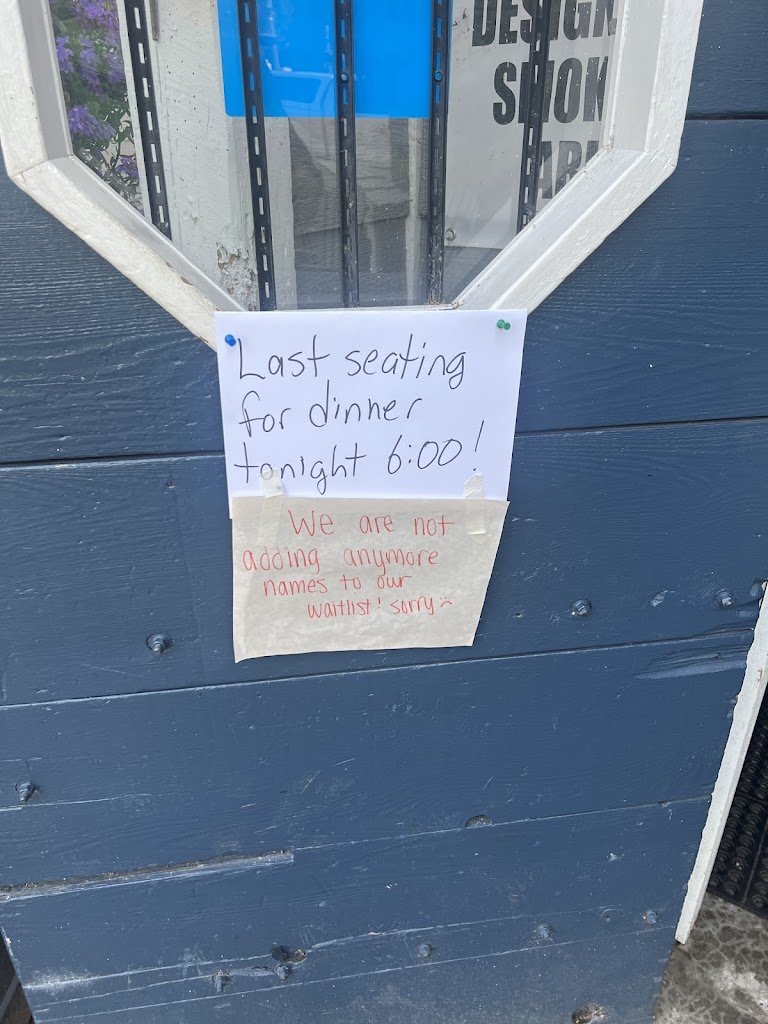 DESIGN
SMOK
AR
Last seating
for dinner
tonight 6:00!
We are not
adding anymore
names to our
waitlist! sorry :(